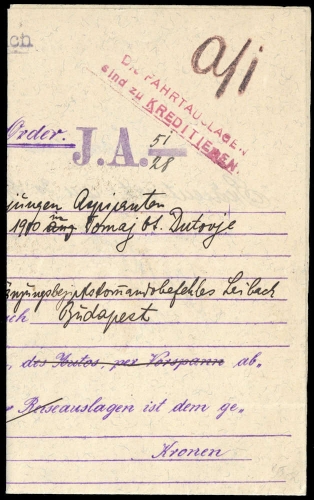 ch
a/1
DIE FAHRTAUSLAGEN
sind zu KREDITIEREN.
Order.
J.A. 51
28
jungen Aspiranten
1900 in Tomaj bt. Dutovje
Leibach
ch Budapest
, des Autos, per Vorspann ab„
Reiseauslagen ist dem ge„
Kronen